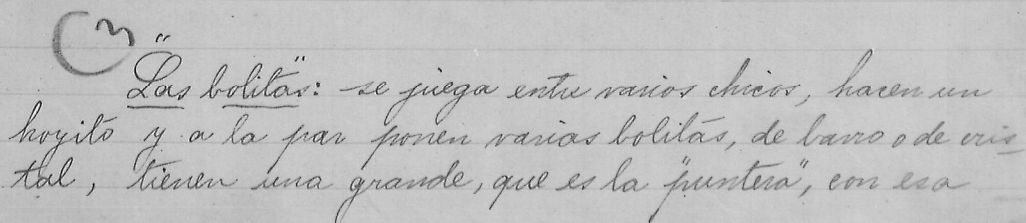 (3
"Las bolitas": se juega entre varios chicos, hacen un
hoyito y a la par ponen varias bolitas, de barro o de cris-
tal, tienen una grande, que es la "puntera", con esa